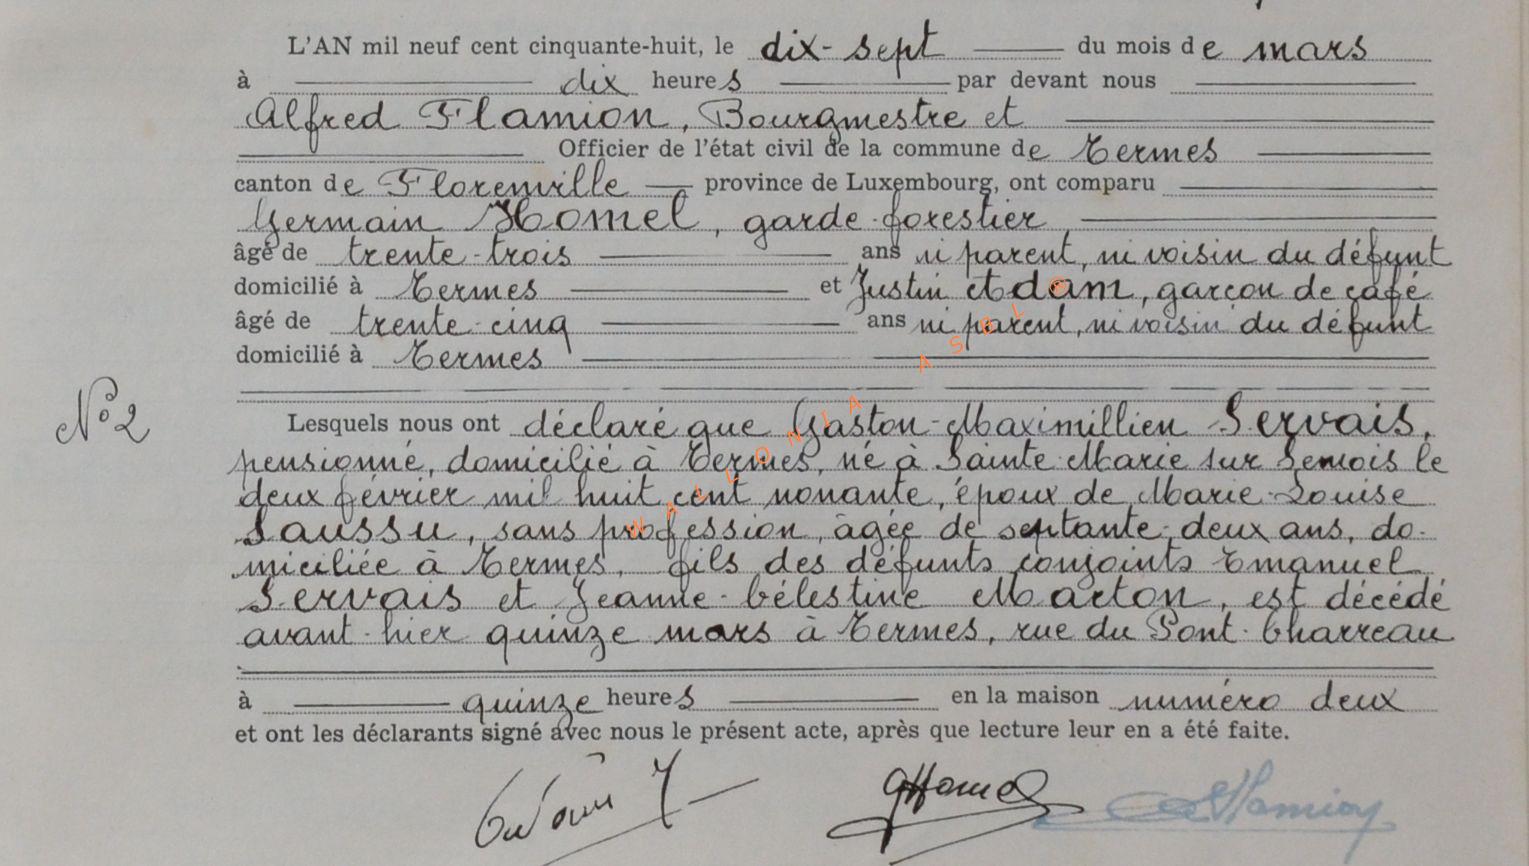 L'AN mil neuf cent cinquante-huit, le dix-sept du mois de mars
à dix heures par devant nous
Alfred Flamion, Bourgmestre et
Officier de l'état civil de la commune de Termes
canton de Florenville province de Luxembourg, ont comparu
Germain Homel, garde-forestier
âgé de trente-trois ans ni parent, ni voisin du défunt
domicilié à Termes et Justin Adam, garçon de café
âgé de trente-cinq ans ni parent, ni voisin du défunt
domicilié à Termes
N° 2
Lesquels nous ont déclaré que Gaston-Maximillien Servais,
pensionné, domicilié à Termes, né à Sainte-Marie sur Semois le
deux février mil huit cent nonante, époux de Marie-Louise
Saussu, sans profession, âgée de septante-deux ans, do-
miciliée à Termes, fils des défunts conjoints Emanuel
Servais et Jeanne-Célestine Marton, est décédé
avant-hier quinze mars à Termes, rue du Pont-Charreau
à quinze heures en la maison numéro deux
et ont les déclarants signé avec nous le présent acte, après que lecture leur en a été faite.
GHomel
Flamion
WALLONIA ASBL ©